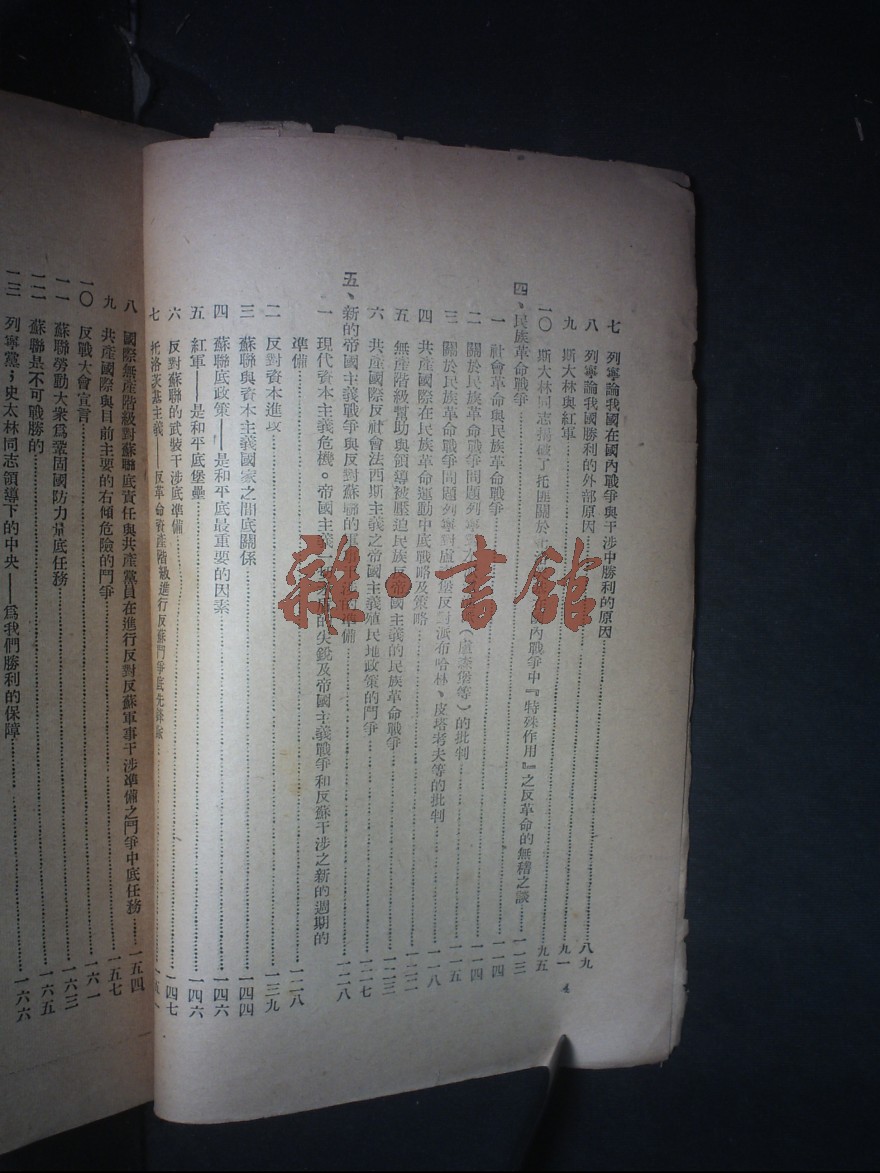 七　列寧論我國在國內戰爭與干涉中勝利的原因
八　列寧論我國勝利的外部原因……八九
九　斯大林與紅軍……九一
一〇　斯大林同志揭破了托匪關於 內戰爭中『特殊作用』之反革命的無稽之談……九五
四、民族革命戰爭……一一三
一　社會革命與民族革命戰爭……一一四
二　關於民族革命戰爭問題列寧對 （盧森堡等）的批判……一一四
三　關於民族革命戰爭問題列寧對盧 堡反對派布哈林、皮塔考夫等的批判……一一五
四　共產國際在民族革命運動中底戰略及策略……一一八
五　無產階級幫助與領導被壓迫民族反帝國主義的民族革命戰爭……一二二
六　共產國際反社會法西斯主義之帝國主義殖民地政策的鬥爭……一二七
五、新的帝國主義戰爭與反對蘇聯的軍 的準備……一二八
一　現代資本主義危機。帝國主義 的尖銳及帝國主義戰爭和反蘇干涉之新的週期的
準備……一二八
二　反對資本進攻……一三九
三　蘇聯與資本主義國家之間底關係……一四四
四　蘇聯底政策——是和平底最重要的因素……一四六
五　紅軍——是和平底堡壘……一四六
六　反對蘇聯的武裝干涉底準備……一四七
七　托洛茨基主義——反革命資產階級進行反蘇鬥爭底先鋒隊……一五一
4
八　國際無產階級對蘇聯底責任與共產黨員在進行反對反蘇軍事干涉準備之鬥爭中底任務……一五四
九　共產國際與目前主要的右傾危險的鬥爭……一五七
一〇　反戰大會宣言……一六一
一一　蘇聯勞動大衆爲鞏固國防力量底任務……一六三
一二　蘇聯是不可戰勝的……一六五
一三　列寧黨；史太林同志領導下的中央——爲我們勝利的保障……一六六
雜·書館